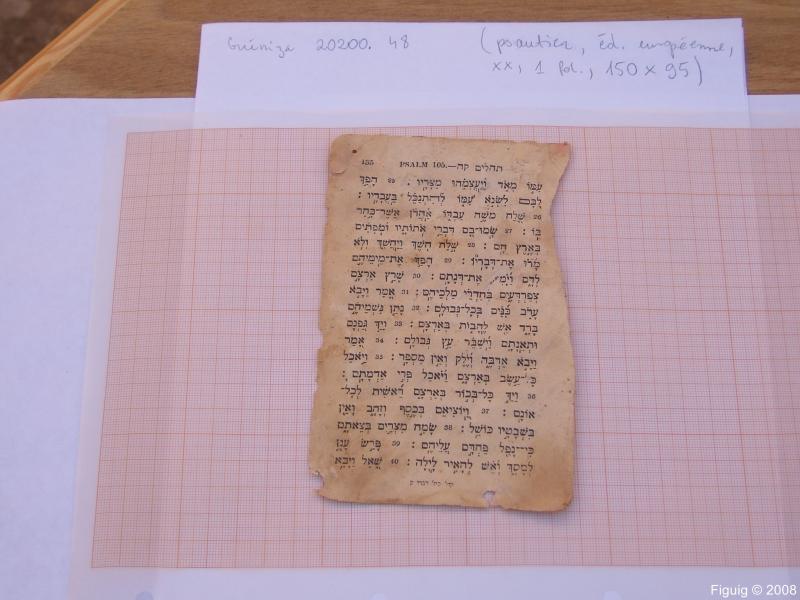 Guéniza 20200. 48 (psautier, éd. européenne,
xx, 1 fol., 150 x 95)
155 PSALM 105.—תהלים קה
עַמּ֣וֹ מְאֹ֑ד וַ֝יַּעֲצִמֵ֗הוּ מִצָּרָֽיו׃ 25 הָפַ֣ךְ
לִ֭בָּם לִשְׂנֹ֣א עַמּ֑וֹ לְ֝הִתְנַכֵּ֗ל בַּעֲבָדָֽיו׃
26 שָׁ֭לַח מֹשֶׁ֣ה עַבְדּ֑וֹ אַ֝הֲרֹ֗ן אֲשֶׁר־בָּֽחַר
בּֽוֹ׃ 27 שָֽׂמוּ־בָ֭ם דִּבְרֵ֣י אֹתוֹתָ֑יו וּ֝מֹפְתִ֗ים
בְּאֶ֣רֶץ חָֽם׃ 28 שָׁ֣לַֽח חֹ֭שֶׁךְ וַיַּחְשִׁ֑ךְ וְלֹֽא
מָ֝ר֗וּ אֶת־דְּבָרֽוֹ׃ 29 הָפַ֣ךְ אֶת־מֵימֵיהֶ֣ם
לְדָ֑ם אֶת־דְּגָתָֽם׃ 30 שָׁרַ֣ץ אַרְצָ֣ם
צְפַרְדְּעִ֑ים בְּ֝חַדְרֵ֗י מַלְכֵיהֶֽם׃ 31 אָ֭מַר וַיָּבֹ֣א
עָרֹ֑ב כִּ֝נִּ֗ים בְּכָל־גְּבוּלָֽם׃ 32 נָתַ֣ן גִּשְׁמֵיהֶ֣ם
בָּרָ֑ד אֵ֖שׁ לֶהָב֣וֹת בְּאַרְצָֽם׃ 33 וַיַּ֣ךְ גַּ֭פְנָם
וּתְאֵנָתָ֑ם וַ֝יְשַׁבֵּ֗ר עֵ֣ץ גְּבוּלָֽם׃ 34 אָ֭מַר
וַיָּבֹ֣א אַרְבֶּ֑ה וְ֝יֶ֗לֶק וְאֵ֣ין מִסְפָּֽר׃ 35 וַיֹּ֣אכַל
עֵ֣שֶׂב בְּאַרְצָ֑ם וַ֝יֹּ֗אכַל פְּרִ֣י אַדְמָתָֽם׃
36 וַיַּ֣ךְ כָּל־בְּכ֣וֹר בְּאַרְצָ֑ם רֵ֝אשִׁ֗ית לְכָל־
אוֹנָֽם׃ 37 וַֽ֭יּוֹצִיאֵם בְּכֶ֣סֶף וְזָהָ֑ב וְאֵ֖ין
בִּשְׁבָטָ֣יו כּוֹשֵֽׁל׃ 38 שָׂמַ֣ח מִצְרַ֣יִם בְּצֵאתָ֑ם
כִּֽי־נָפַ֖ל פַּחְדָּ֣ם עֲלֵיהֶֽם׃ 39 פָּרַ֣שׂ עָנָ֣ן
לְמָסָ֑ךְ וְ֝אֵ֗שׁ לְהָאִ֥יר לָֽיְלָה׃ 40 שָׁאַ֣ל וַיָּבֵ֣א
Figuig © 2008